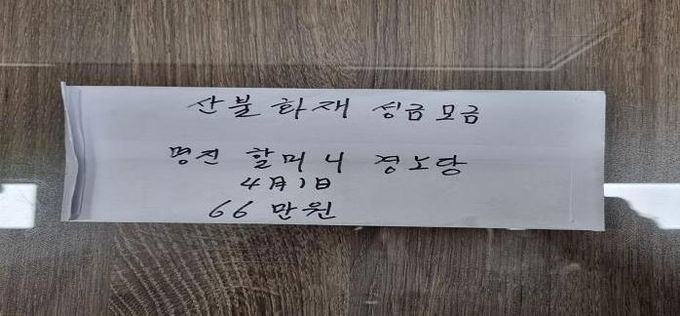 산불 화재 성금모금
명진 할머니 경노당
4月1日
66만원